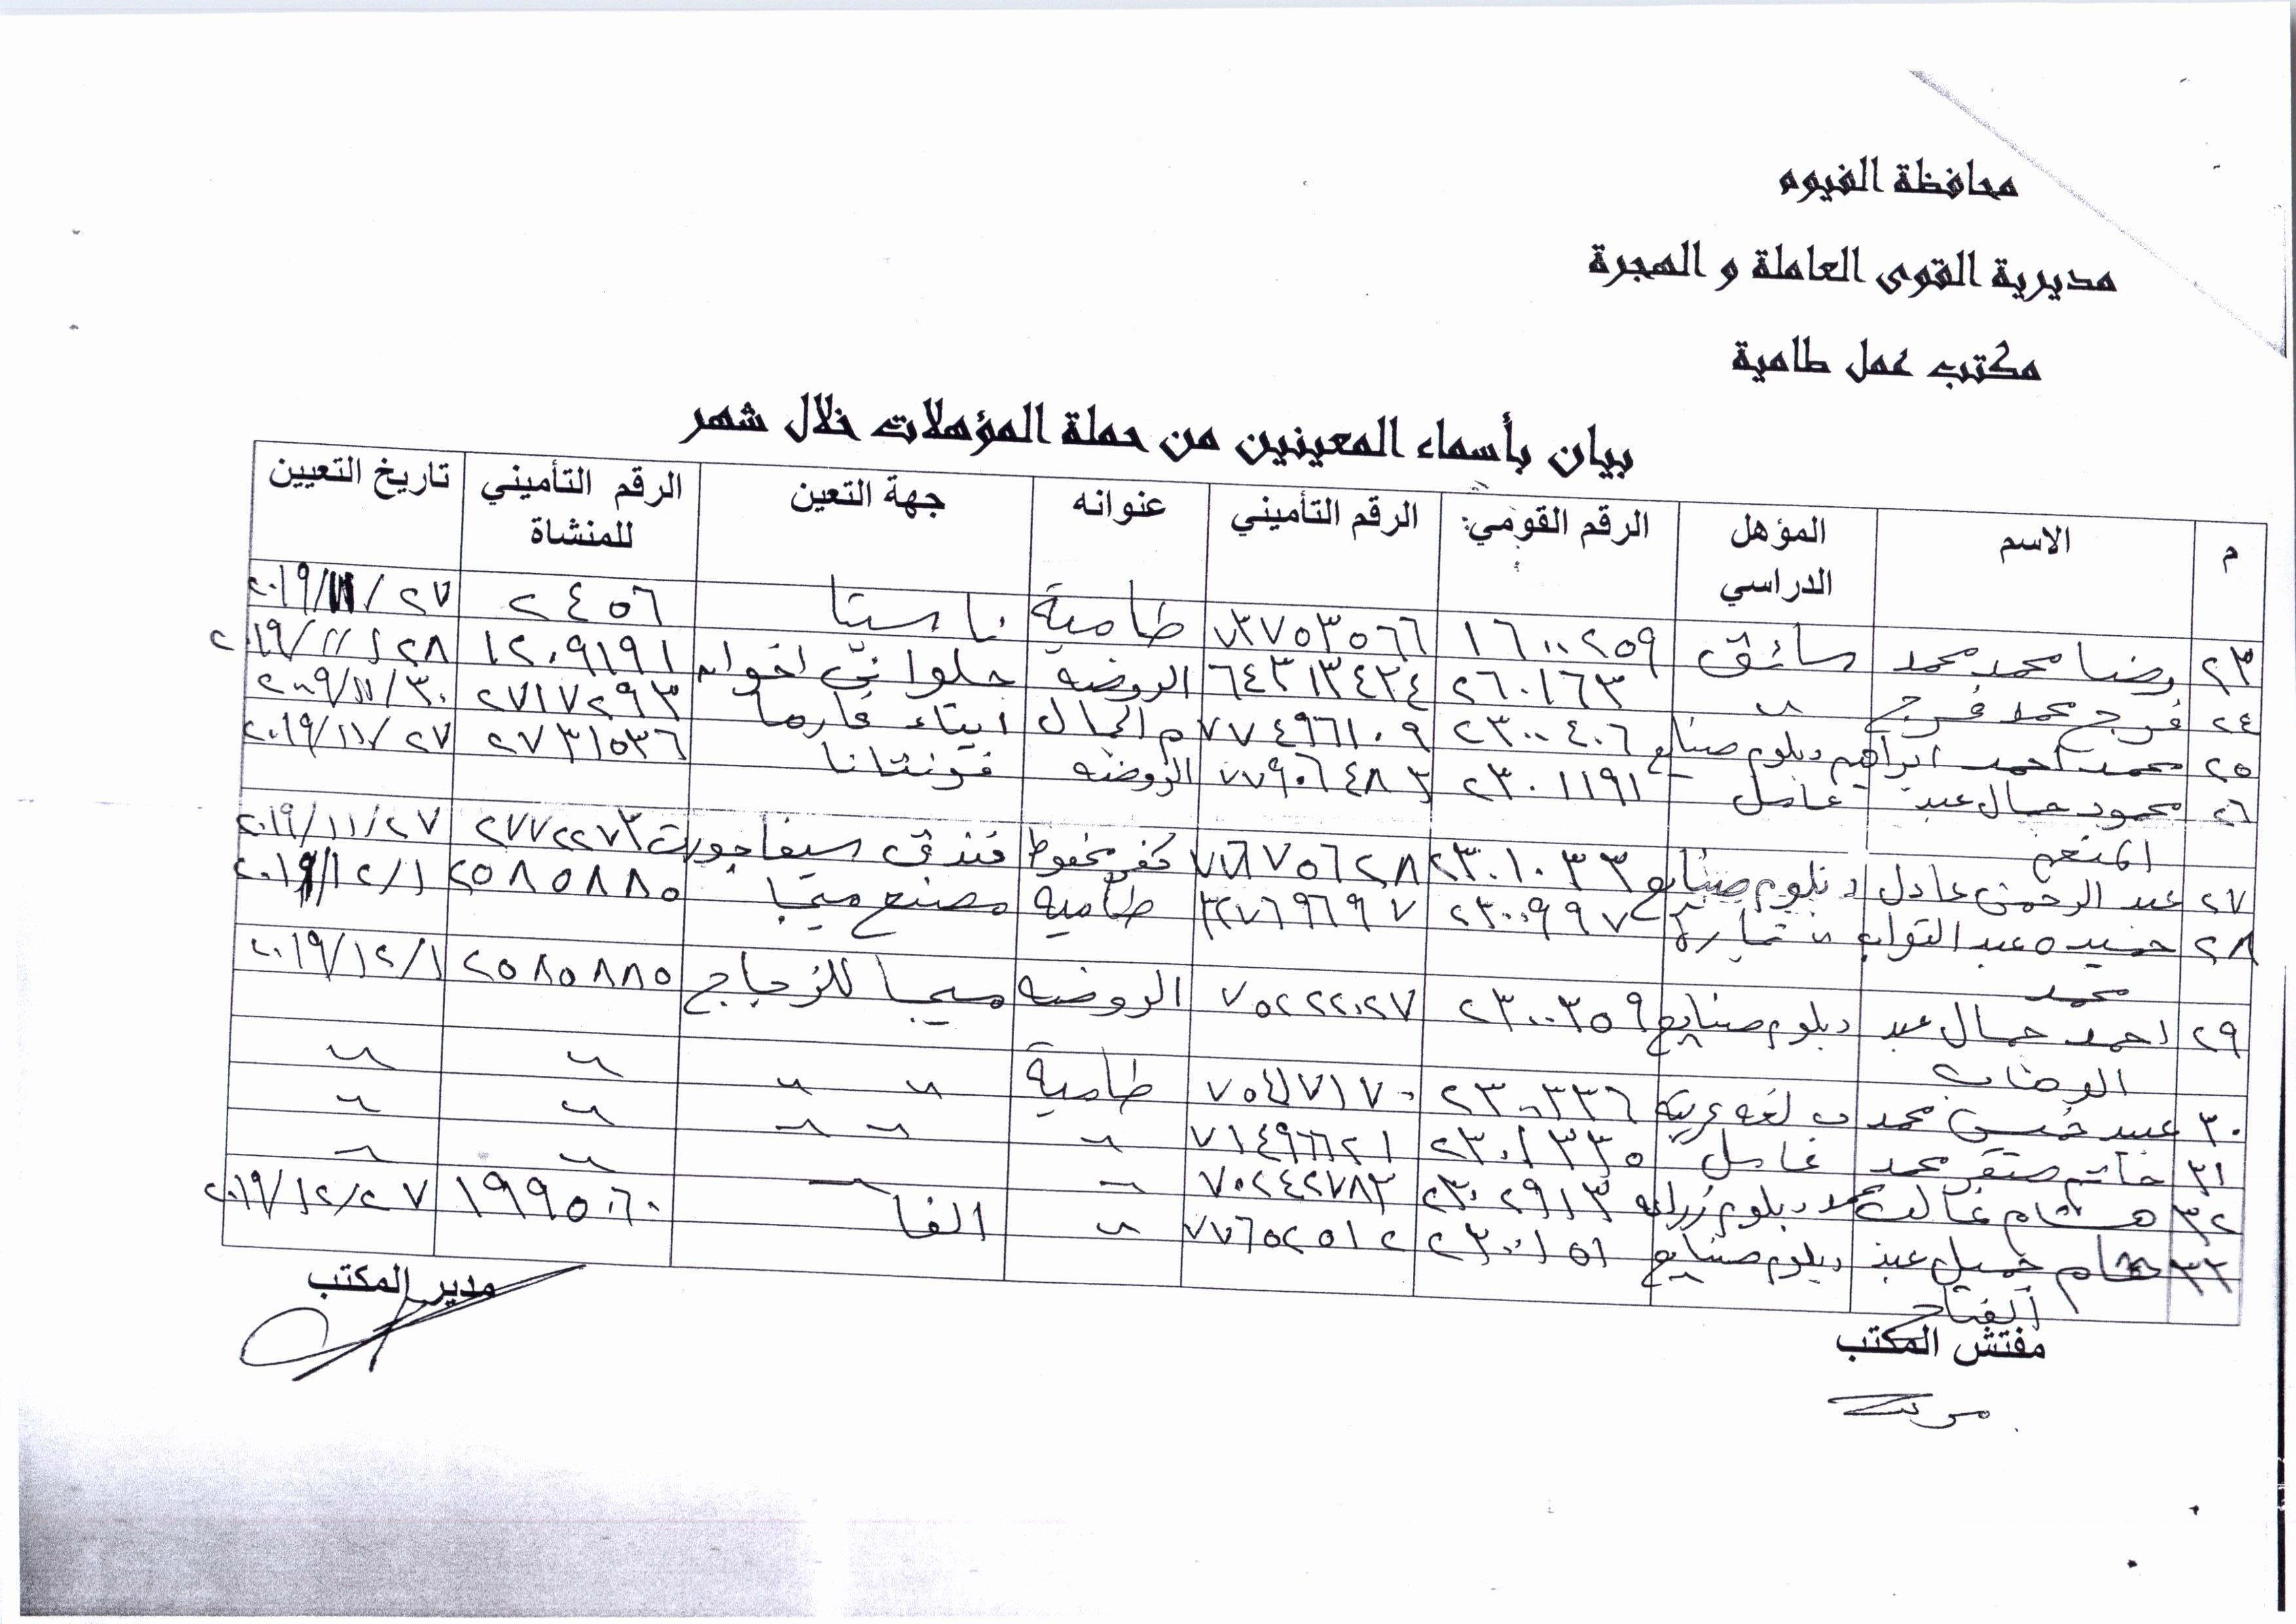 محافظة الفيوم
مديرية القوى العاملة و الهجرة
مكتب عمل طامية
بيان بأسماء المعينين من حملة المؤهلات خلال شهر
م الاسم المؤهل الدراسي الرقم القومي: الرقم التأميني عنوانه جهة التعين الرقم التأميني للمنشاة تاريخ التعيين
٢٣ رضا محمد محمد سائق ١٦٠٠٢٥٩ طامية ناستا ٢٤٥٦ ٢٠١٩/١١/٢٧
٢٤ فرج محمد فرج " ٢٦٠١٦٣ ٦٤٣١٣٤٢٤ الروضه حلواني اخوان ١٢٠٩١٩١ ٢٠١٩/١١/٢٨
٢٥ محمد احمد ابراهيم دبلوم صنايع ٢٣٠٠٤٠٦ ٧٧٤٩٦١٠٩ ٢٧١٧٢٩٣
٢٦ محمود جمال عبد المنعم عامل ٢٣٠١١٩١ ٧٧٩٠٦٤٨٣ الروضه فونتانا ٢٧٣١٥٣٦ ٢٠١٩/١١/٢٧
٢٧ عبد الرحمن عادل دبلوم صنايع ٢٣٠١٠٣٣ كفر محفوظ فندق سيفاجورت ٢٧٧٢٢٧٣ ٢٠١٩/١١/٢٧
٢٨ عبد التواب محمد " تجارة ٢٣٠٠٩٩٧ طاميه مصنع ميجا ٢٥٨٥٨٨٥ ٢٠١٩/١٢/١
٢٩ احمد جمال عبد الوهاب دبلوم صنايع ٢٣٠٠٣٥٩ ٧٥٢٢٢٠٢٧ الروضه ميجا للزجاج ٢٥٨٥٨٨٥ ٢٠١٩/١٢/١
٣٠ عبيد حسن محمد ب لغه عربيه ٢٣٠٠٣٣٦ طامية " " " "
٣١ حاتم صقر محمد عامل ٢٣٠١٣٣٥ ٧١٤٩٦٦٢١ " " " " "
٣٢ هشام غالب محمد دبلوم زراعه ٢٣٠٢٩١٣ ٧٠٢٤٢٧٨٣ " " " "
٣٣ جميل عبد الفتاح دبلوم صنايع ٢٣٠٠١٥١ ٧٧٦٥٢٥١٢ " الفا ١٩٩٥٠٦٠ ٢٠١٩/١٢/٢٧
مفتش المكتب مدير المكتب